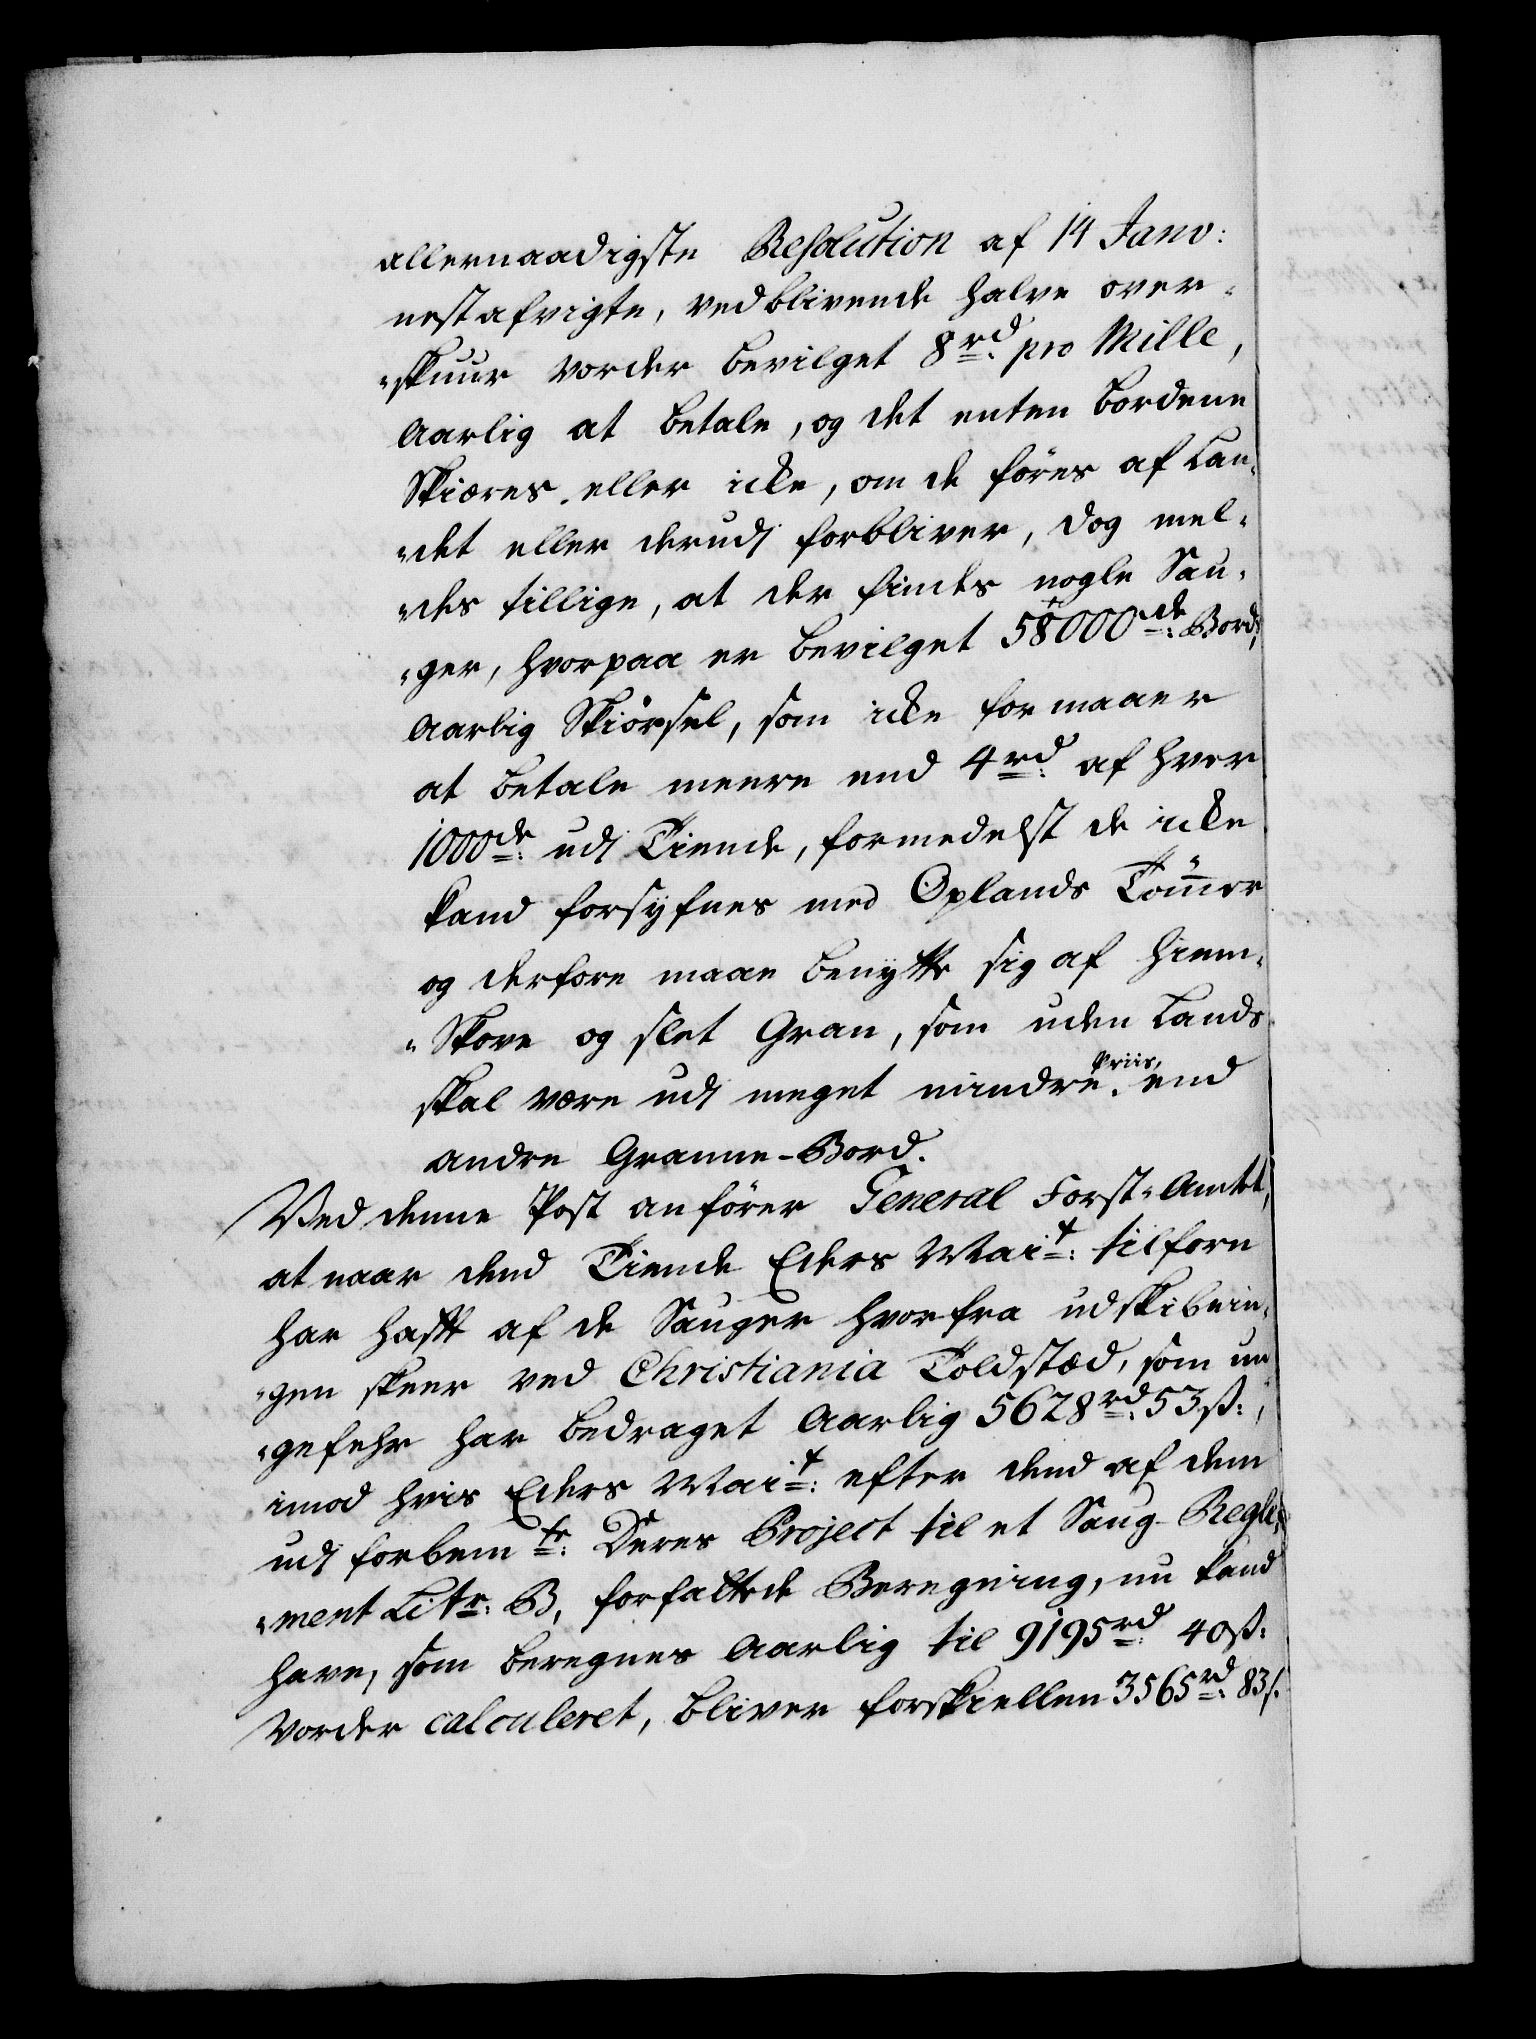 allernaadigste Resolution af 14 Janv:
nest afvigte, vedblivende halve over-
-skuur vorder bevilget 8rd: pro Mille,
Aarlig at betale, og det enten Bordene
Skiæres eller icke, om de föres af Lan-
-det eller derudj forbliver, dog mel-
-des tillige, at der findes nogle Sau-
-ger, hvorpaa er bevilget 58000de: Bord,
Aarlig Skiörsel, som icke formaaer
at betale meere end 4rd: af hver
1000de: udj Tiende, formedelst de icke
kand forsyfnes med Oplands Tömer
og derfore maae benytte sig af Hiem-
-Skove og slet Gran, som uden Lands
skal være udj meget mindre Priis, end
andre Granne-Bord.
Ved denne Post anförer General Forst-Amtet,
at naar dend Tiende Eders Mait: tilforn
har hafft af de Sauger hvorfra udskibnin-
-gen skeer ved Christiania Toldstæd, som un-
-gefehr har bedraget Aarlig 5628rd: 53ß:,
imod hvis Eders Mait: efter dend af dem
udj forbemte: Deres Project til et Saug-Regle-
-ment Litr: B, forfattede Beregning, nu kand
have, som beregnes Aarlig til 9195rd: 40ß:
vorder calculeret, bliver forskiellen 3565rd: 83ß.